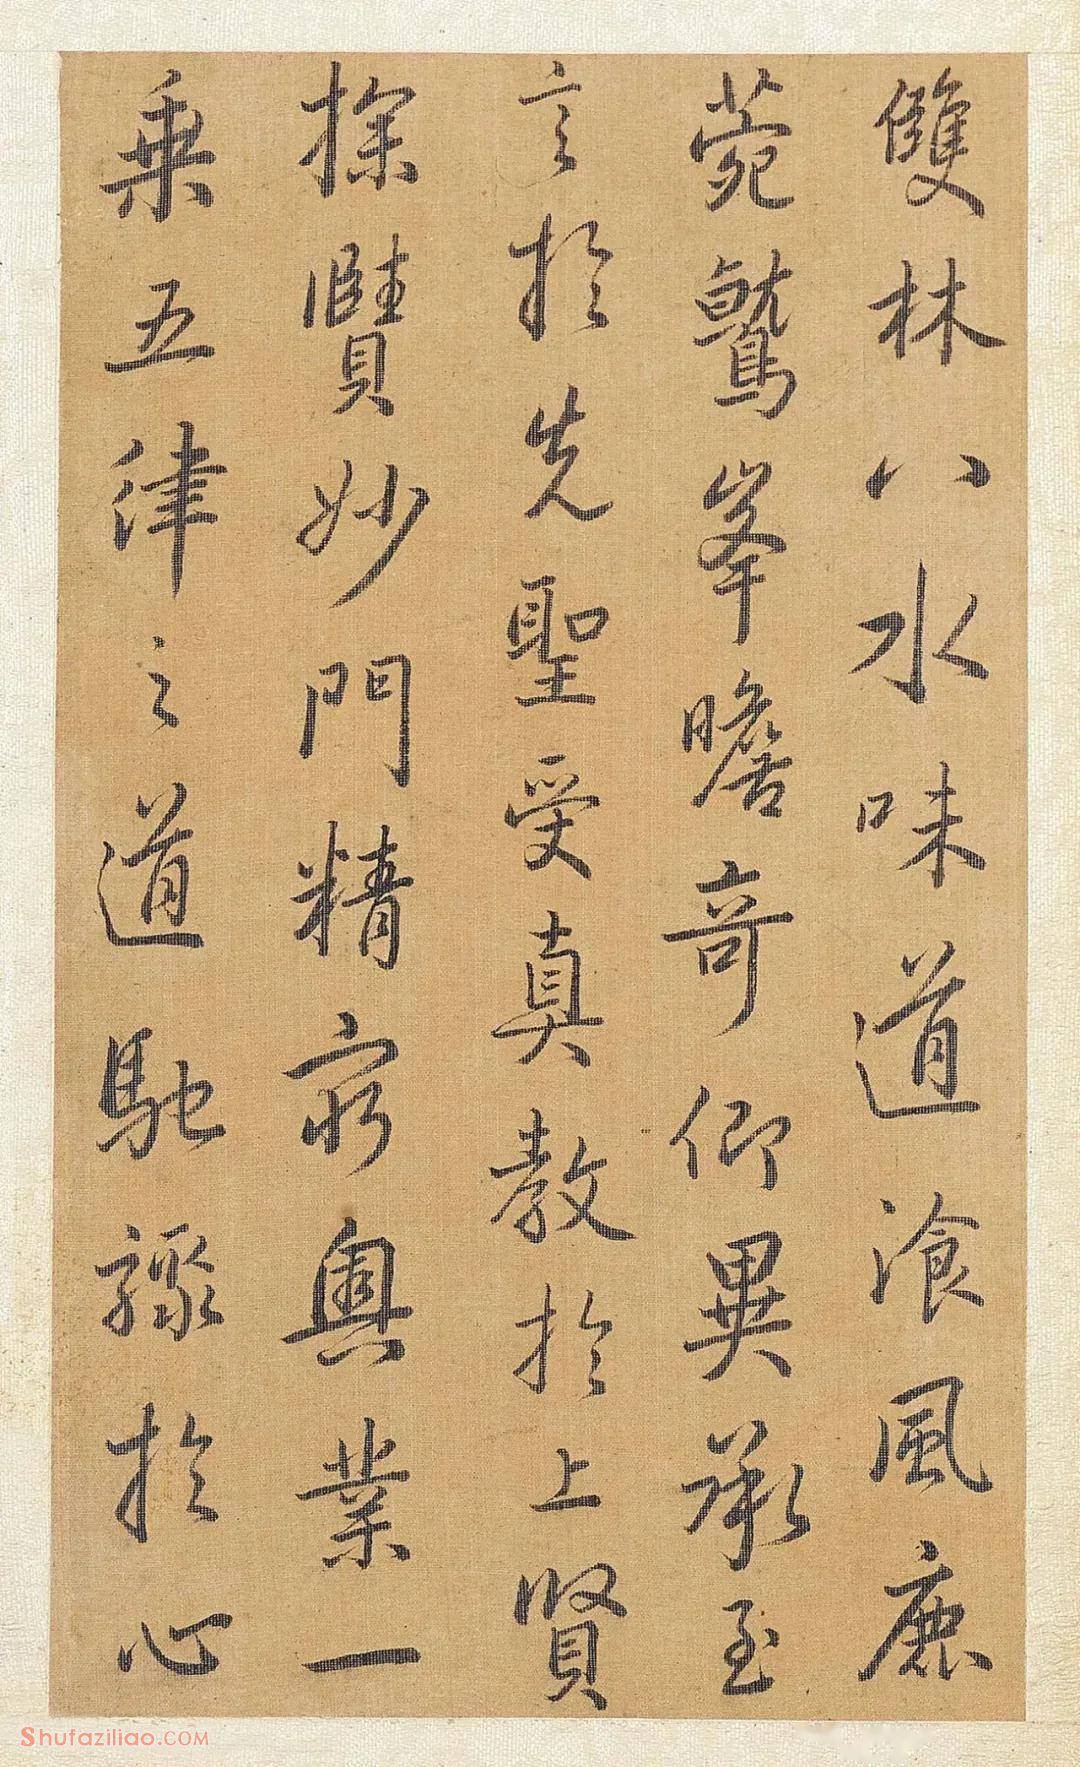 雙林八水味道飡風鹿
菀鷲峯瞻奇仰異承至
言於先聖受真教於上賢
探賾妙門精窮奧業一
乘五律之道馳驟於心
Shufaziliao.com